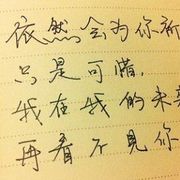 依然会为你
只是可惜，
我在我的未来
再看不见你